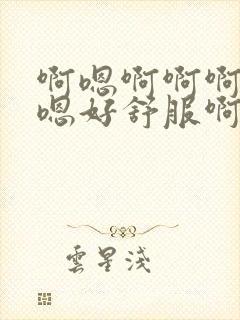 啊嗯啊啊啊
嗯好舒服啊
雲星淺